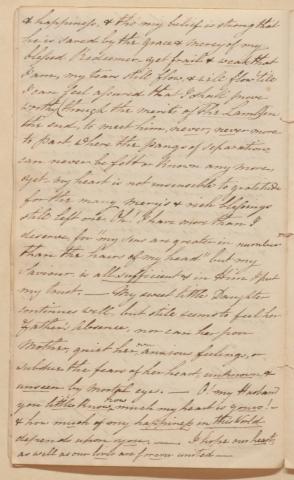 & happiness, & tho my belief is strong that
he is saved by the grace & mercy of my
blessed Redeemer, yet frail & weak that
I am, my tears still flow, & will flow till
I can feel assured that I shall prove
worthy (through the merits of The Lamb
the end, to meet him, never, never more
to part where the pangs of separation
can never be felt or known any more,
yet my heart is not insensible to gratitude
for the many mercy's & rich blessings
still left me. Oh! I have more than I
deserve, for "my sins are greater in number
than the hairs of my head" but my
Saviour is all sufficient & in Him I put
my trust. — My sweet little Daughter
continues well, but still seems to feel her
Father's absence, nor can her poor
Mother, quiet her own anxious feelings, or
subdue the fears of her heart, unknown &
unseen by mortal eyes. — O! my Husband
you little know how much my heart is yours! —
& how much of my happiness in this World
depends upon you. — I hope our hearts
as well as our lives are forever united —